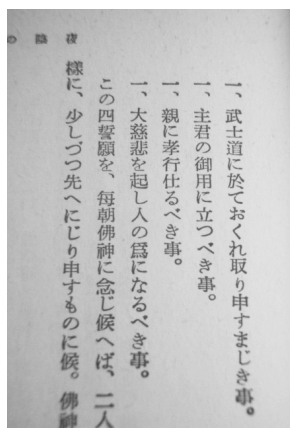 一、武士道に於ておくれ取り申すまじき事。
一、主君の御用に立つべき事。
一、親に孝行仕るべき事。
一、大慈悲を起し人の爲になるべき事。
この四誓願を、每朝佛神に念じ候へば、二人
樣に、少しづつ先へにじり申すものに候。佛神
夜陰の